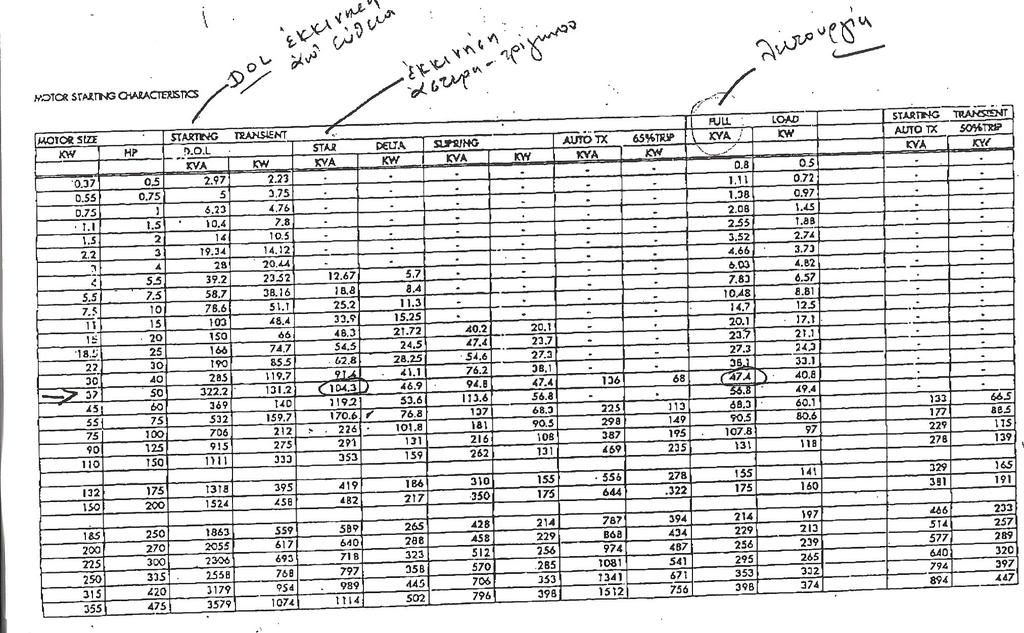 DOL ἐκκινηση
ἀπ' εὐθεια
ἐκκινηση
ἀστερα - τριγωνο
Λειτουργία
MOTOR STARTING CHARACTERISTICS
MOTOR SIZE STARTING TRANSIENT FULL LOAD STARTING TRANSIENT
D.O.L STAR DELTA SLIPRING AUTO TX 65%TRIP AUTO TX 50%TRIP
KW HP KVA KW KVA KW KVA KW KVA KW KVA KW KVA KW
0.37 0.5 2.97 2.23 - - - - - - 0.8 0.5 - -
0.55 0.75 5 3.75 - - - - - - 1.11 0.72 - -
0.75 1 6.23 4.76 - - - - - - 1.38 0.97 - -
1.1 1.5 10.4 7.8 - - - - - - 2.08 1.45 - -
1.5 2 14 10.5 - - - - - - 2.55 1.88 - -
2.2 3 19.34 14.12 - - - - - - 3.52 2.74 - -
3 4 28 20.44 - - - - - - 4.66 3.73 - -
4 5.5 39.2 23.52 12.67 5.7 - - - - 6.03 4.82 - -
5.5 7.5 58.7 38.16 18.8 8.4 - - - - 7.83 6.57 - -
7.5 10 78.6 51.1 25.2 11.3 - - - - 10.48 8.81 - -
11 15 103 48.4 33.9 15.25 - - - - 14.7 12.5 - -
15 20 150 66 48.3 21.72 40.2 20.1 - - 20.1 17.1 - -
18.5 25 166 74.7 54.5 24.5 47.4 23.7 - - 23.7 21.1 - -
22 30 190 85.5 62.8 28.25 54.6 27.3 - - 27.3 24.3 - -
30 40 285 119.7 91.4 41.1 76.2 38.1 - - 38.1 33.1 - -
37 50 322.2 131.2 104.3 46.9 94.8 47.4 136 68 47.4 40.8 - -
45 60 369 140 119.2 53.6 113.6 56.8 56.8 49.4
55 75 532 159.7 170.6 76.8 137 68.3 225 113 68.3 60.1 133 66.5
75 100 706 212 226 101.8 181 90.5 298 149 90.5 80.6 177 88.5
90 125 915 275 291 131 216 108 387 195 107.8 97 229 115
110 150 1111 333 353 159 262 131 469 235 131 118 278 139
132 175 1318 395 419 186 310 155 556 278 155 141 329 165
150 200 1524 458 482 217 350 175 644 322 175 160 381 191
185 250 1863 559 589 265 428 214 787 394 214 197 466 233
200 270 2055 617 640 288 458 229 868 434 229 213 514 257
225 300 2306 693 718 323 512 256 974 487 256 239 577 289
250 335 2558 768 797 358 570 285 1081 541 295 265 640 320
315 420 3179 954 989 445 706 353 1341 671 353 332 794 397
355 475 3579 1074 1114 502 796 398 1512 756 398 374 894 447